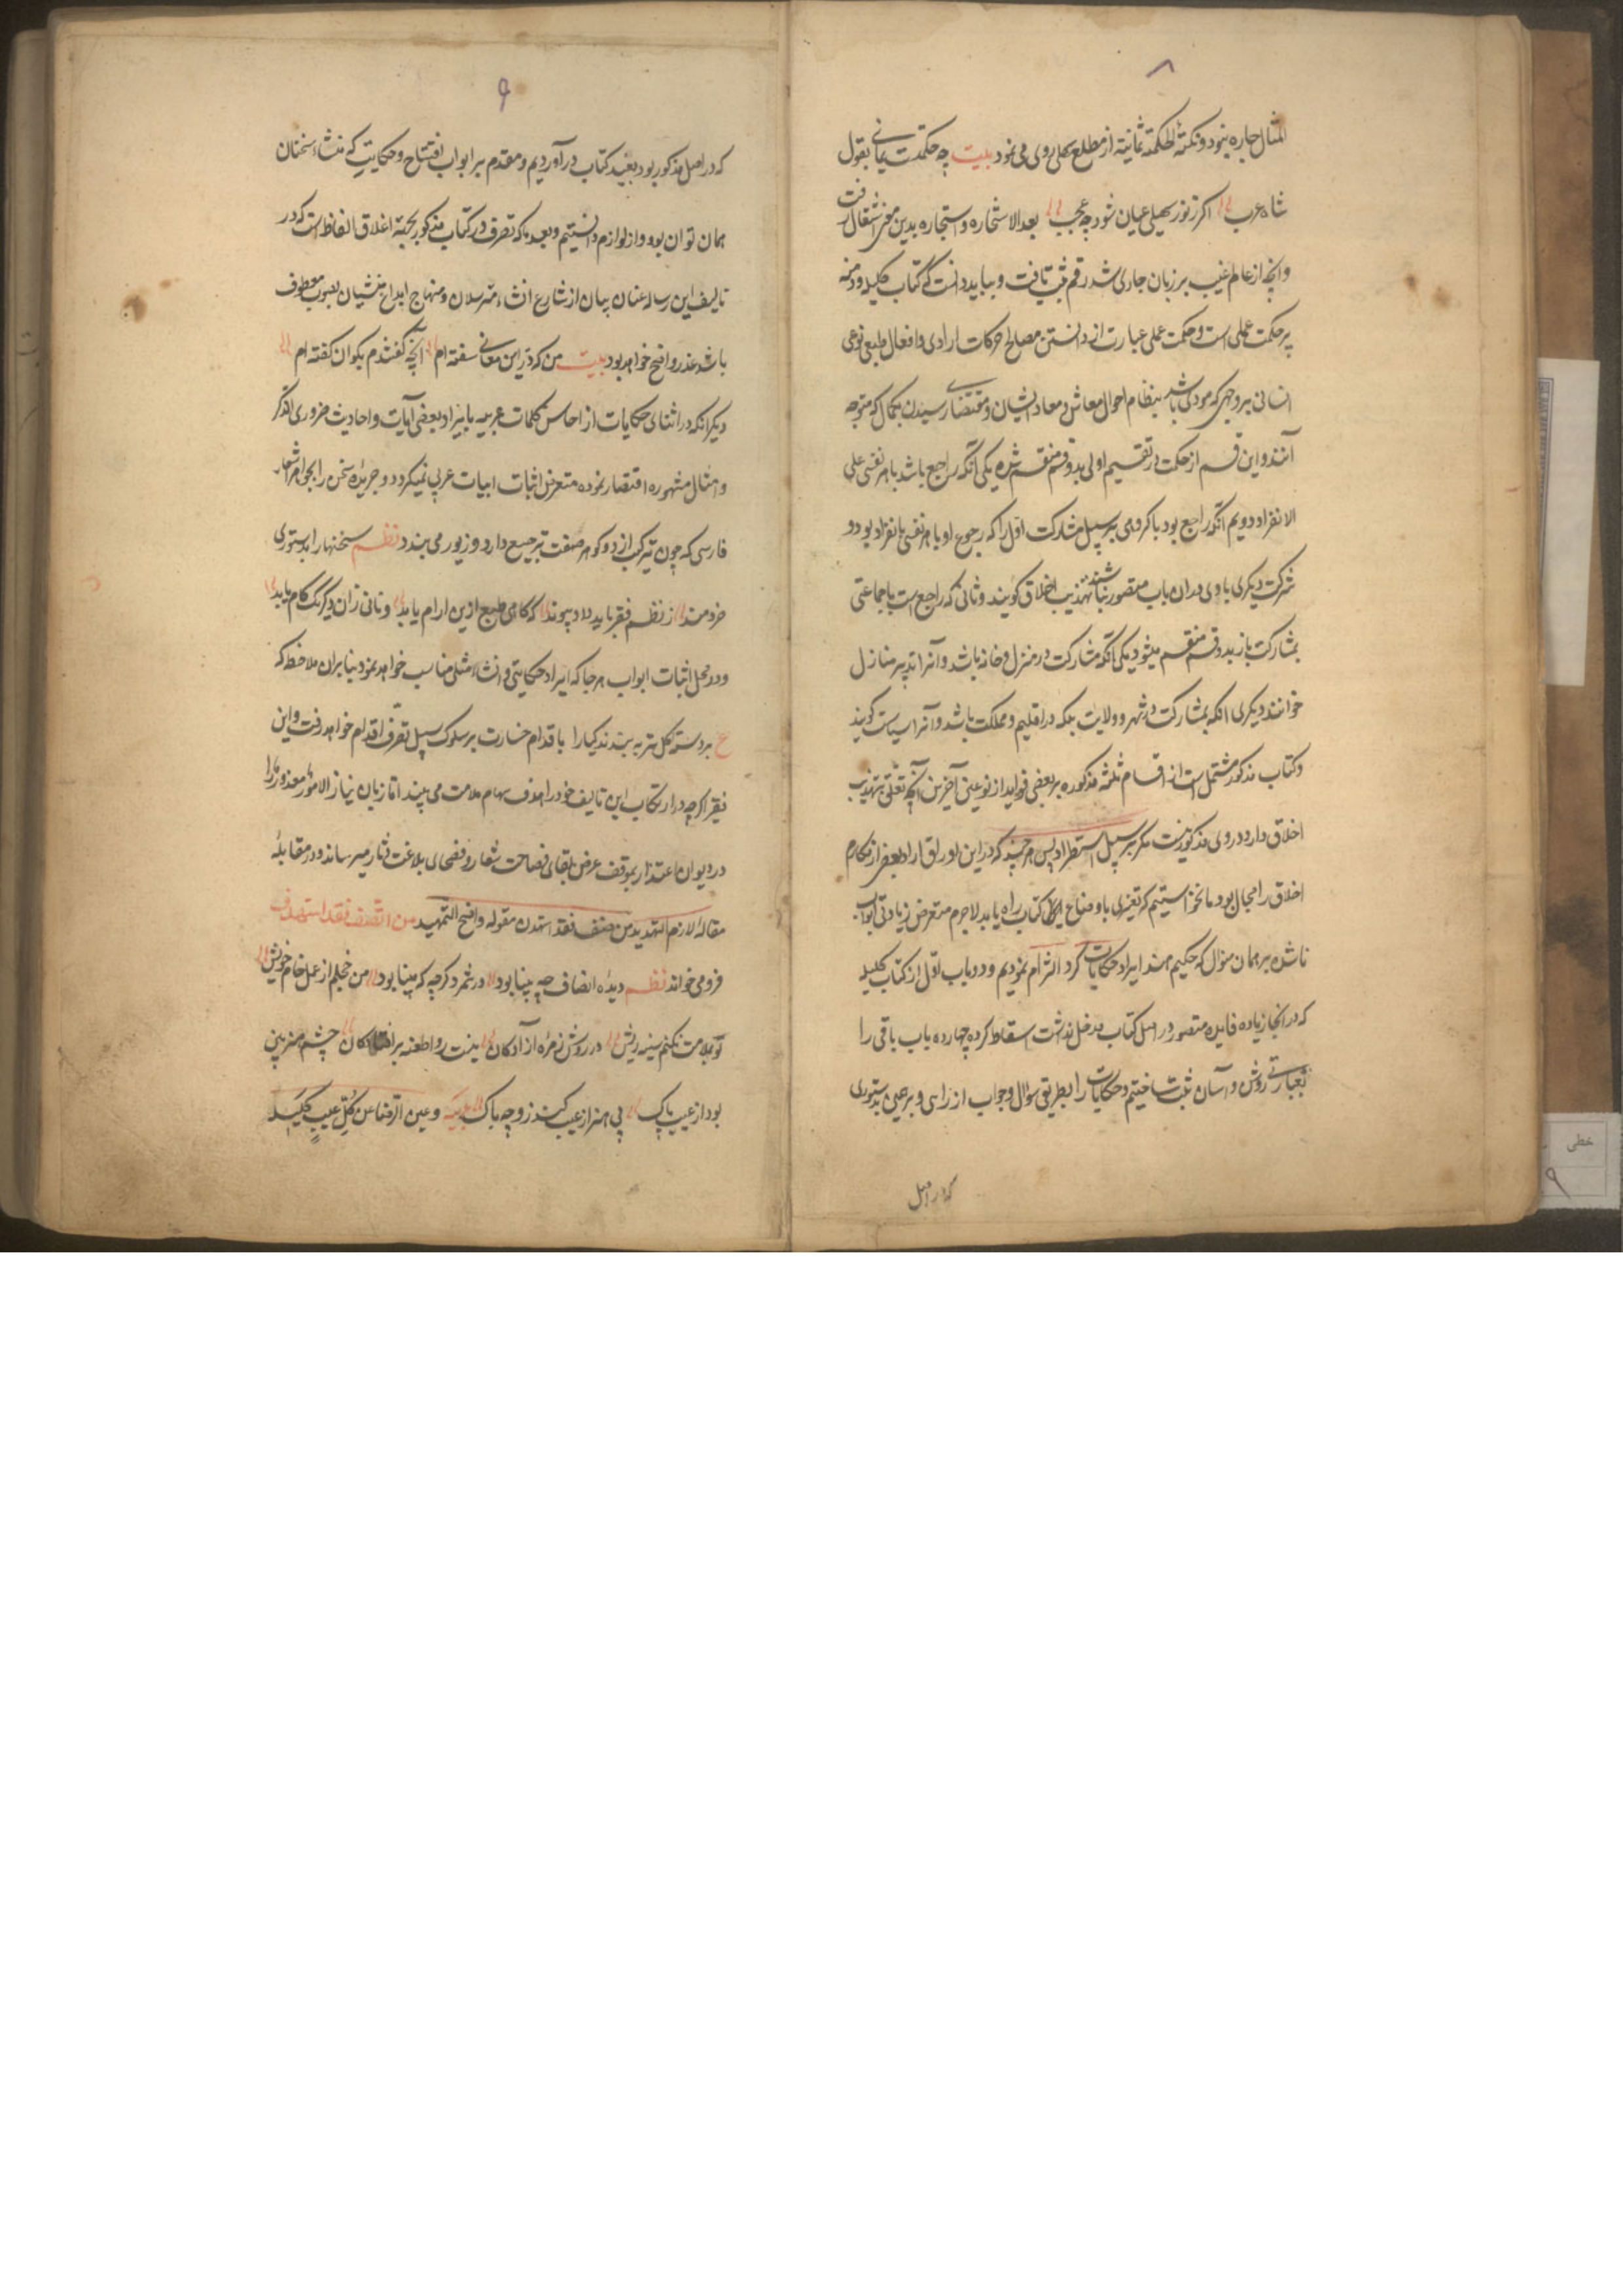 ۸
المثال چاره نبود و نکتهٔ الحکمة یمانیة از مطلع سهیلی روی می نمود بیت چه حکمت یمانی بقول
شاه عرب اگر ز نور سهیلی عیان شود چه عجب بعد الاستخاره و استجاره بدین معنی اشتغال رفت
و آنچه از عالم غیب بر زبان جاری شد رقم ثبت یافت و بباید دانست که کتاب کلیله و دمنه
بر حکمت عملی است و حکمت عملی عبارت از دانستن مصالح حرکات ارادی و افعال طبیعی نوعی
انسانی بر وجهی که مودی باشد بنظام احوال معاش و معاد ایشان و مقتضی رسیدن بکمال که متوجه
آنند و این قسم از حکمت در تقسیم اولی بدو قسم منقسم شده یکی آنکه راجع باشد با هر نفسی علی
الانفراد دویم آنکه راجع بود با گروهی بر سبیل مشارکت اول را که رجوع او با هر نفسی بانفراد بود و
شرکت دیگری با وی در آن باب متصور نباشد تهذیب اخلاق گویند و ثانی که راجع است با جماعتی
بمشارکت باز بدو قسم منقسم میشود یکی آنکه مشارکت در منزل و خانه باشد و آنرا تدبیر منازل
خوانند دیگری آنکه بمشارکت در شهر و ولایت بلکه در اقلیم و مملکت باشد و آنرا سیاست گویند
و کتاب مذکور مشتمل است از اقسام ثلثه مذکوره بر بعضی فواید از نوعین آخرین آنچه تعلق بتهذیب
اخلاق دارد در وی مذکور نیست مگر بر سبیل استطراد پس هر چند که در این اوراق ایراد بعضی از مکارم
اخلاق را مجال بود ما نخواستیم که تغیری باوضاع کتاب راه یابد لاجرم متعرض زیادتی ابواب
ناشده بر همان منوال که حکیم هند ایراد حکایات کرد التزام نمودیم و دو باب اول از کتاب کلیله
که در آنجا زیاده فایده متصور در اصل کتاب مدخل نداشت اسقاط کرده چهارده باب باقی را
بعبارت روشن و آسان ثبت ساختیم و حکایات را بطریق سؤال و جواب از رای و برهمن بدستوری
که در اصل
۹
که در اصل مذکور بود بقید کتاب در آوردیم و مقدم بر ابواب افتتاح و حکایت که منشاء سخنان
همان توان بود از لوازم دانستیم و بعد ما که تصرف در کتاب مذکور بجهة اغلاق الفاظ است که در
تالیف این رساله عنان بیان از شارع انشاء مترسلان و منهاج ابداع منشیان بصوب معطوف
باشد عذر واضح خواهد بود بیت من که در این معانی سفته ام آنچه گفتندم بگو آن گفته ام
دیگر آنکه در اثنای حکایات از احاسن کلمات عربیه بایراد بعضی آیات و احادیث ضروری الذکر
و امثال مشهوره اقتصار نموده متعرض اثبات ابیات عربی نمیگردد و جریده سخن را بجواهر اشعار
فارسی که چون ترکیب از دو گوهر صفت ترصیع دارد و زیور می بندد نظم سخنها را بدستوری
خردمند از نظم فقر باید داد پیوند که کاهی طبع از این آرام یابد و نانی زان دیگر یک کام یابد
و در محل اثبات ابواب هر جا که ایراد حکایتی و انشاء مثلی مناسب خواهد نمود بنابر آن ملاحظه که
ع بر دسته گل نیز به بندند گیا را باقدام جسارت بر سلوک سبیل تصرف اقدام خواهد رفت و این
فقیر اگر چه در ارتکاب این تالیف خود را هدف سهام ملامت می بیند اما زبان نیاز الامور معذورا
در دیوان اعتذار بموقف عرض بلغای فصاحت شعار و فصحای بلاغت دثار میرساند و در مقابله
مقاله لازم التهدید من صنف فقد استهدف مقوله واضح التمهید من انصف فقد استهدف
فرو می خواند نظم دیده انصاف چه بینا بود در شمرد گرچه که مینا بود من خجلم از عمل خام خویش
تو بملامت نکنم سینه ریش در روش زمره آزادگان نیست روا طعنه بر افتادگان چشم هنر بین
بود از عیب پاک بی هنر از عیب کند زو چه باک و عین الرضا عن کل عیب کلیلة